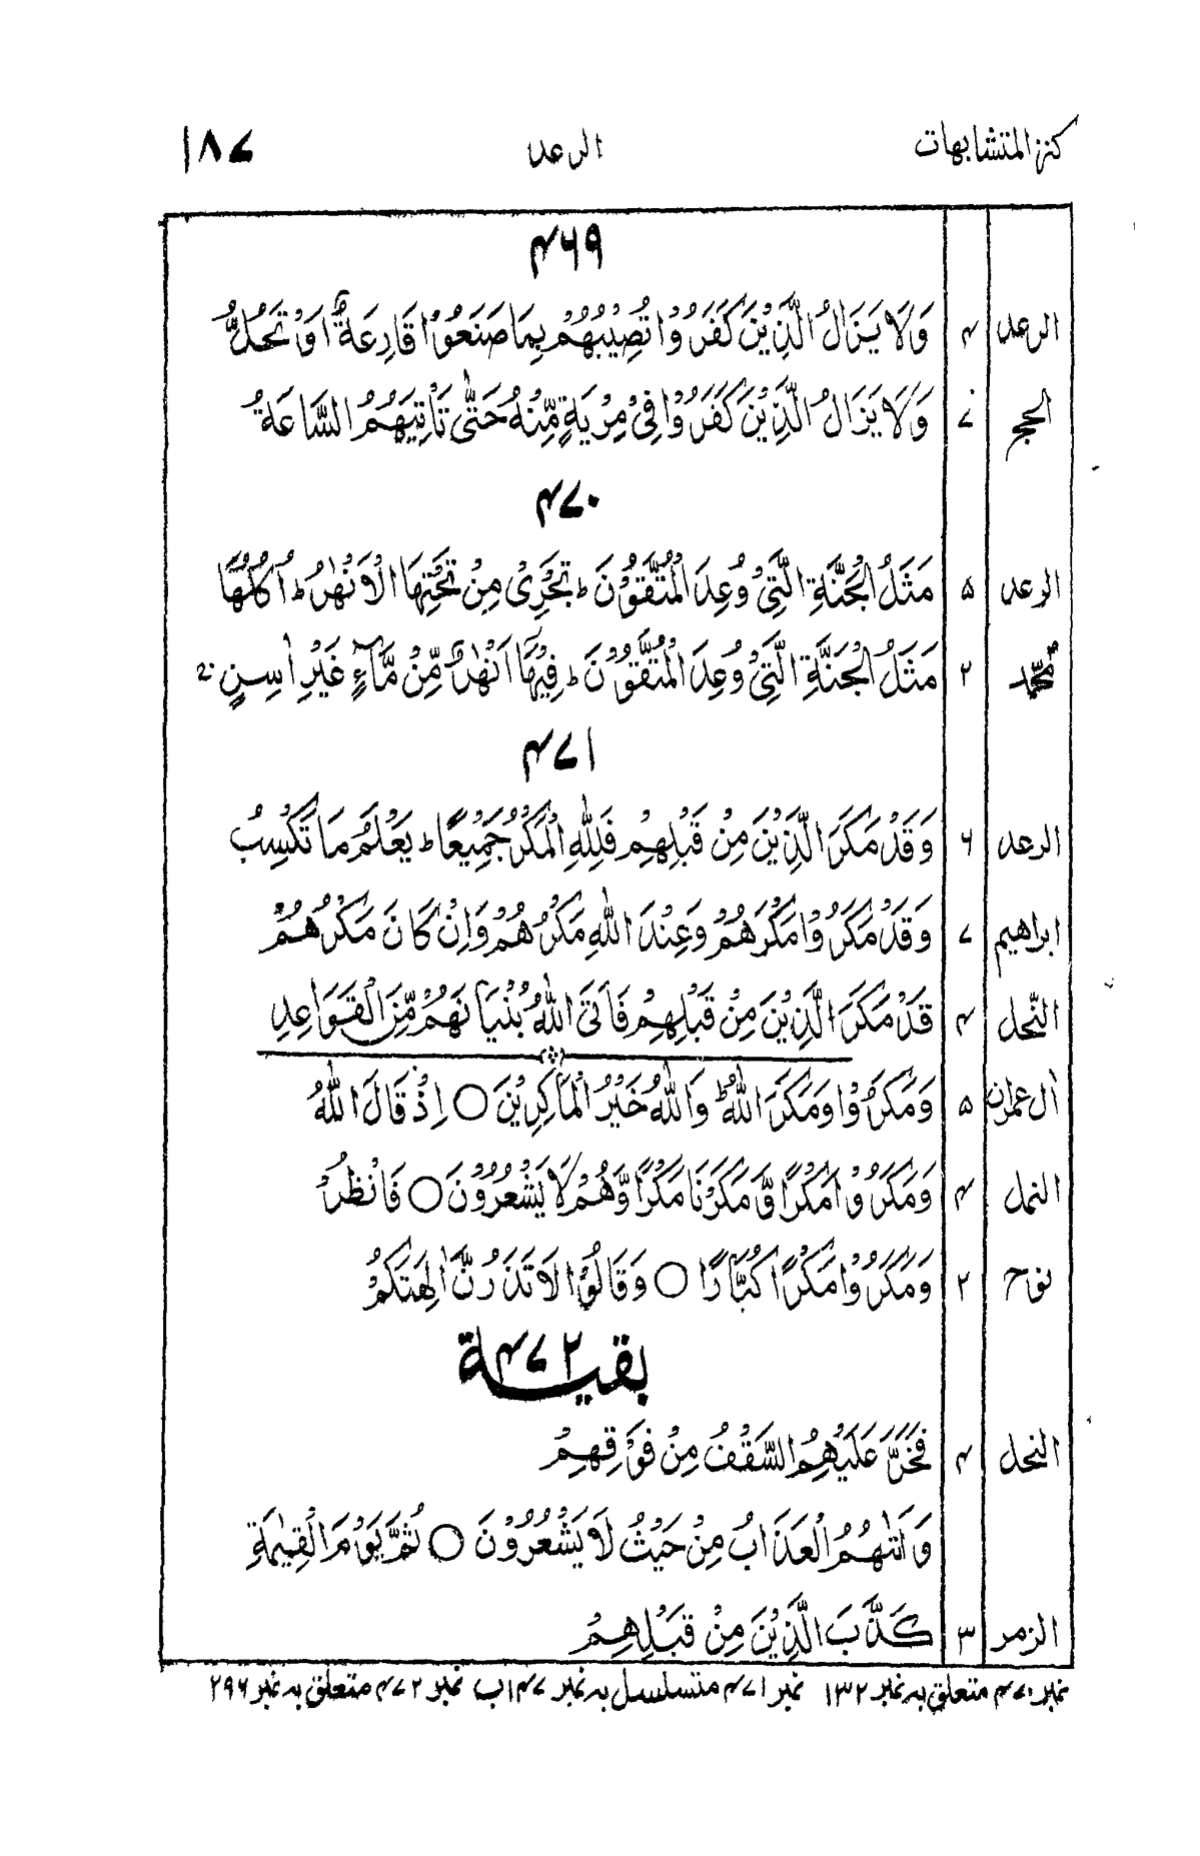 كنز المتشابهات الرعد ١٨٧
٤٦٩
الرعد ٤ وَلَا يَزَالُ الَّذِيْنَ كَفَرُوْا تُصِيْبُهُمْ بِمَا صَنَعُوْا قَارِعَةٌ اَوْ تَحُلُّ
الحج ٧ وَلَا يَزَالُ الَّذِيْنَ كَفَرُوْا فِيْ مِرْيَةٍ مِّنْهُ حَتّٰى تَاْتِيَهُمُ السَّاعَةُ
٤٧٠
الرعد ٥ مَثَلُ الْجَنَّةِ الَّتِيْ وُعِدَ الْمُتَّقُوْنَ ؕ تَجْرِيْ مِنْ تَحْتِهَا الْاَنْهٰرُ ؕ اُكُلُهَا
محمّد ٢ مَثَلُ الْجَنَّةِ الَّتِيْ وُعِدَ الْمُتَّقُوْنَ ؕ فِيْهَآ اَنْهٰرٌ مِّنْ مَّآءٍ غَيْرِ اٰسِنٍ
٤٧١
الرعد ٦ وَقَدْ مَكَرَ الَّذِيْنَ مِنْ قَبْلِهِمْ فَلِلّٰهِ الْمَكْرُ جَمِيْعًا ؕ يَعْلَمُ مَا تَكْسِبُ
ابراهيم ٧ وَقَدْ مَكَرُوْا مَكْرَهُمْ وَعِنْدَ اللّٰهِ مَكْرُهُمْ وَاِنْ كَانَ مَكْرُهُمْ
النّحل ٤ قَدْ مَكَرَ الَّذِيْنَ مِنْ قَبْلِهِمْ فَاَتَى اللّٰهُ بُنْيَانَهُمْ مِّنَ الْقَوَاعِدِ
اٰل عمرٰن ٥ وَمَكَرُوْا وَمَكَرَ اللّٰهُ ؕ وَاللّٰهُ خَيْرُ الْمَاكِرِيْنَ ○ اِذْ قَالَ اللّٰهُ
النمل ٤ وَمَكَرُوْا مَكْرًا وَّمَكَرْنَا مَكْرًا وَّهُمْ لَا يَشْعُرُوْنَ ○ فَانْظُرْ
نوح ٢ وَمَكَرُوْا مَكْرًا كُبَّارًا ○ وَقَالُوْا لَا تَذَرُنَّ اٰلِهَتَكُمْ
بقية ٤٧٢
النحل ٤ فَخَرَّ عَلَيْهِمُ السَّقْفُ مِنْ فَوْقِهِمْ
وَاَتٰىهُمُ الْعَذَابُ مِنْ حَيْثُ لَا يَشْعُرُوْنَ ○ ثُمَّ يَوْمَ الْقِيٰمَةِ
الزمر ٣ كَذَّبَ الَّذِيْنَ مِنْ قَبْلِهِمْ
نمبر ٤٧٠ متعلق بہ نمبر ١٣٢ نمبر ٤٧١ متسلسل بہ نمبر ٤٧١ب نمبر ٤٧٢ متعلق بہ نمبر ٢٩٦